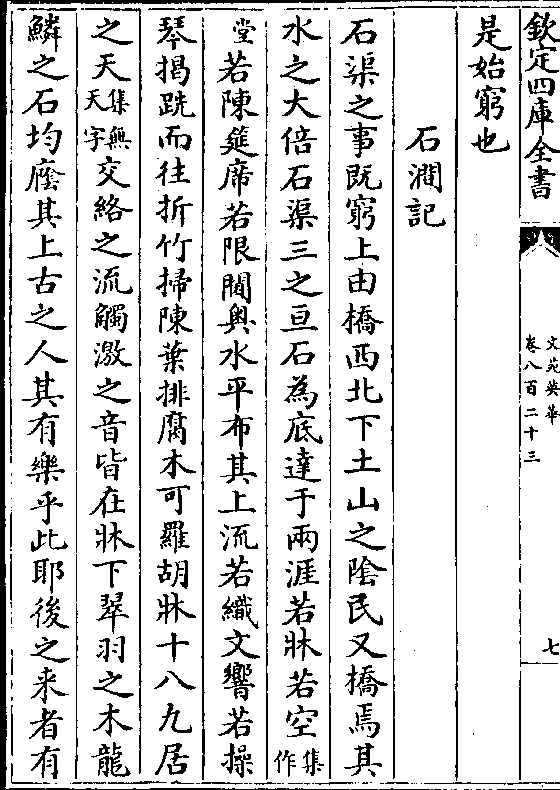 欽定四庫全書
文苑英華
卷八百二十三
七
是始窮也
石澗記
石渠之事既窮上由橋西北下土山之陰民又橋焉其
水之大倍石渠三之亘石為底達于兩涯若牀若空集作
堂若陳筵席若限閫奥水平布其上流若織文響若操
琴揭跣而往折竹掃陳葉排腐木可羅胡牀十八九居
之天集無天字交絡之流觸激之音皆在牀下翠羽之木龍
鱗之石均廕其上古之人其有樂乎此耶後之来者有